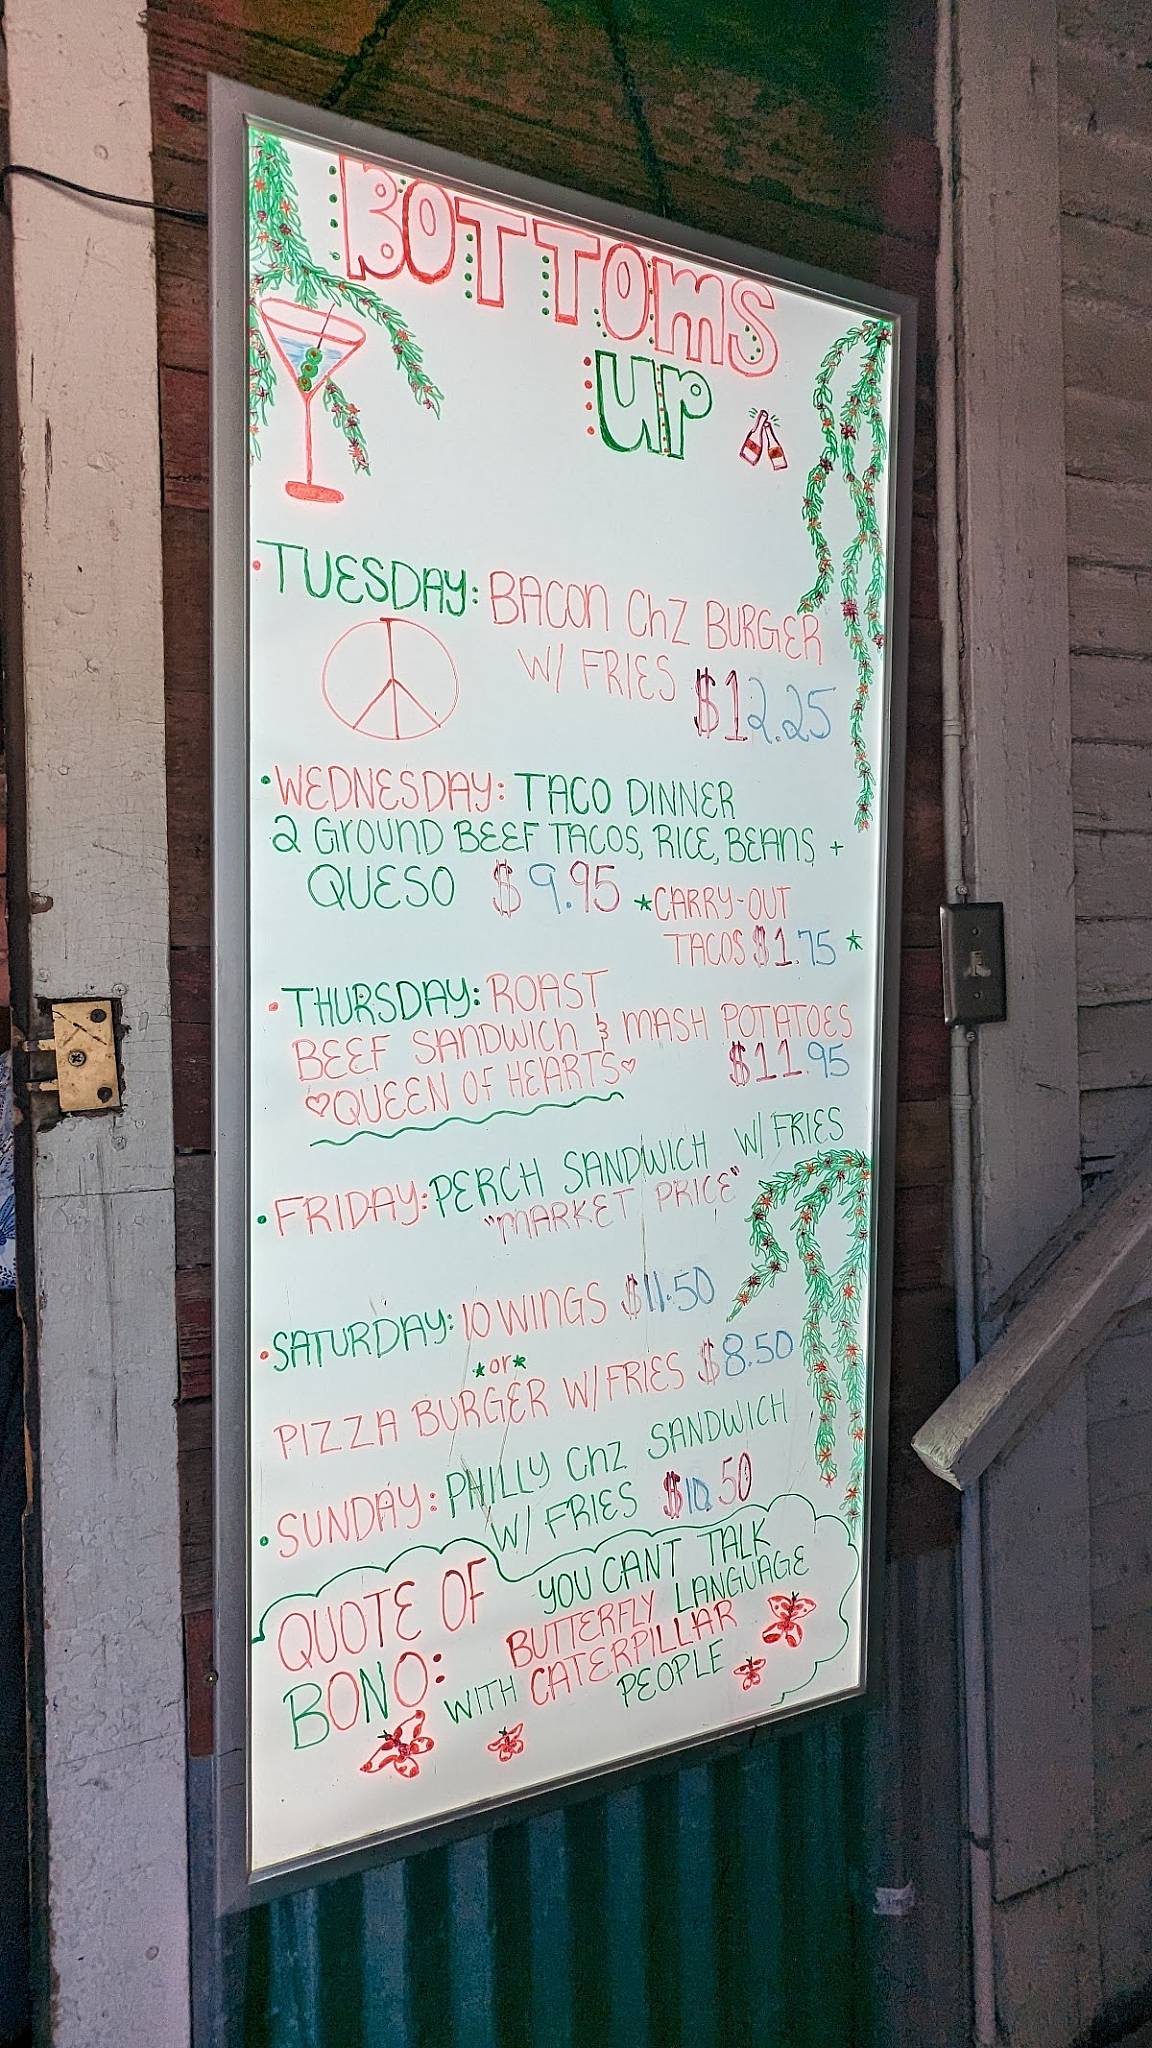 BOTTOMS
UP
• TUESDAY: BACON ChZ BURGER
W/ FRIES $12.25
• WEDNESDAY: TACO DINNER
2 GROUND BEEF TACOS, RICE, BEANS +
QUESO $9.95 *CARRY-OUT
TACOS $1.75 *
• THURSDAY: ROAST
BEEF SANDWICH & MASH POTATOES
♡QUEEN OF HEARTS♡ $11.95
• FRIDAY: PERCH SANDWICH W/ FRIES
"MARKET PRICE"
• SATURDAY: 10 WINGS $11.50
*or*
PIZZA BURGER W/ FRIES $8.50
• SUNDAY: PHILLY ChZ SANDWICH
W/ FRIES $10.50
QUOTE OF
BONO:
YOU CANT TALK
BUTTERFLY LANGUAGE
WITH CATERPILLAR
PEOPLE